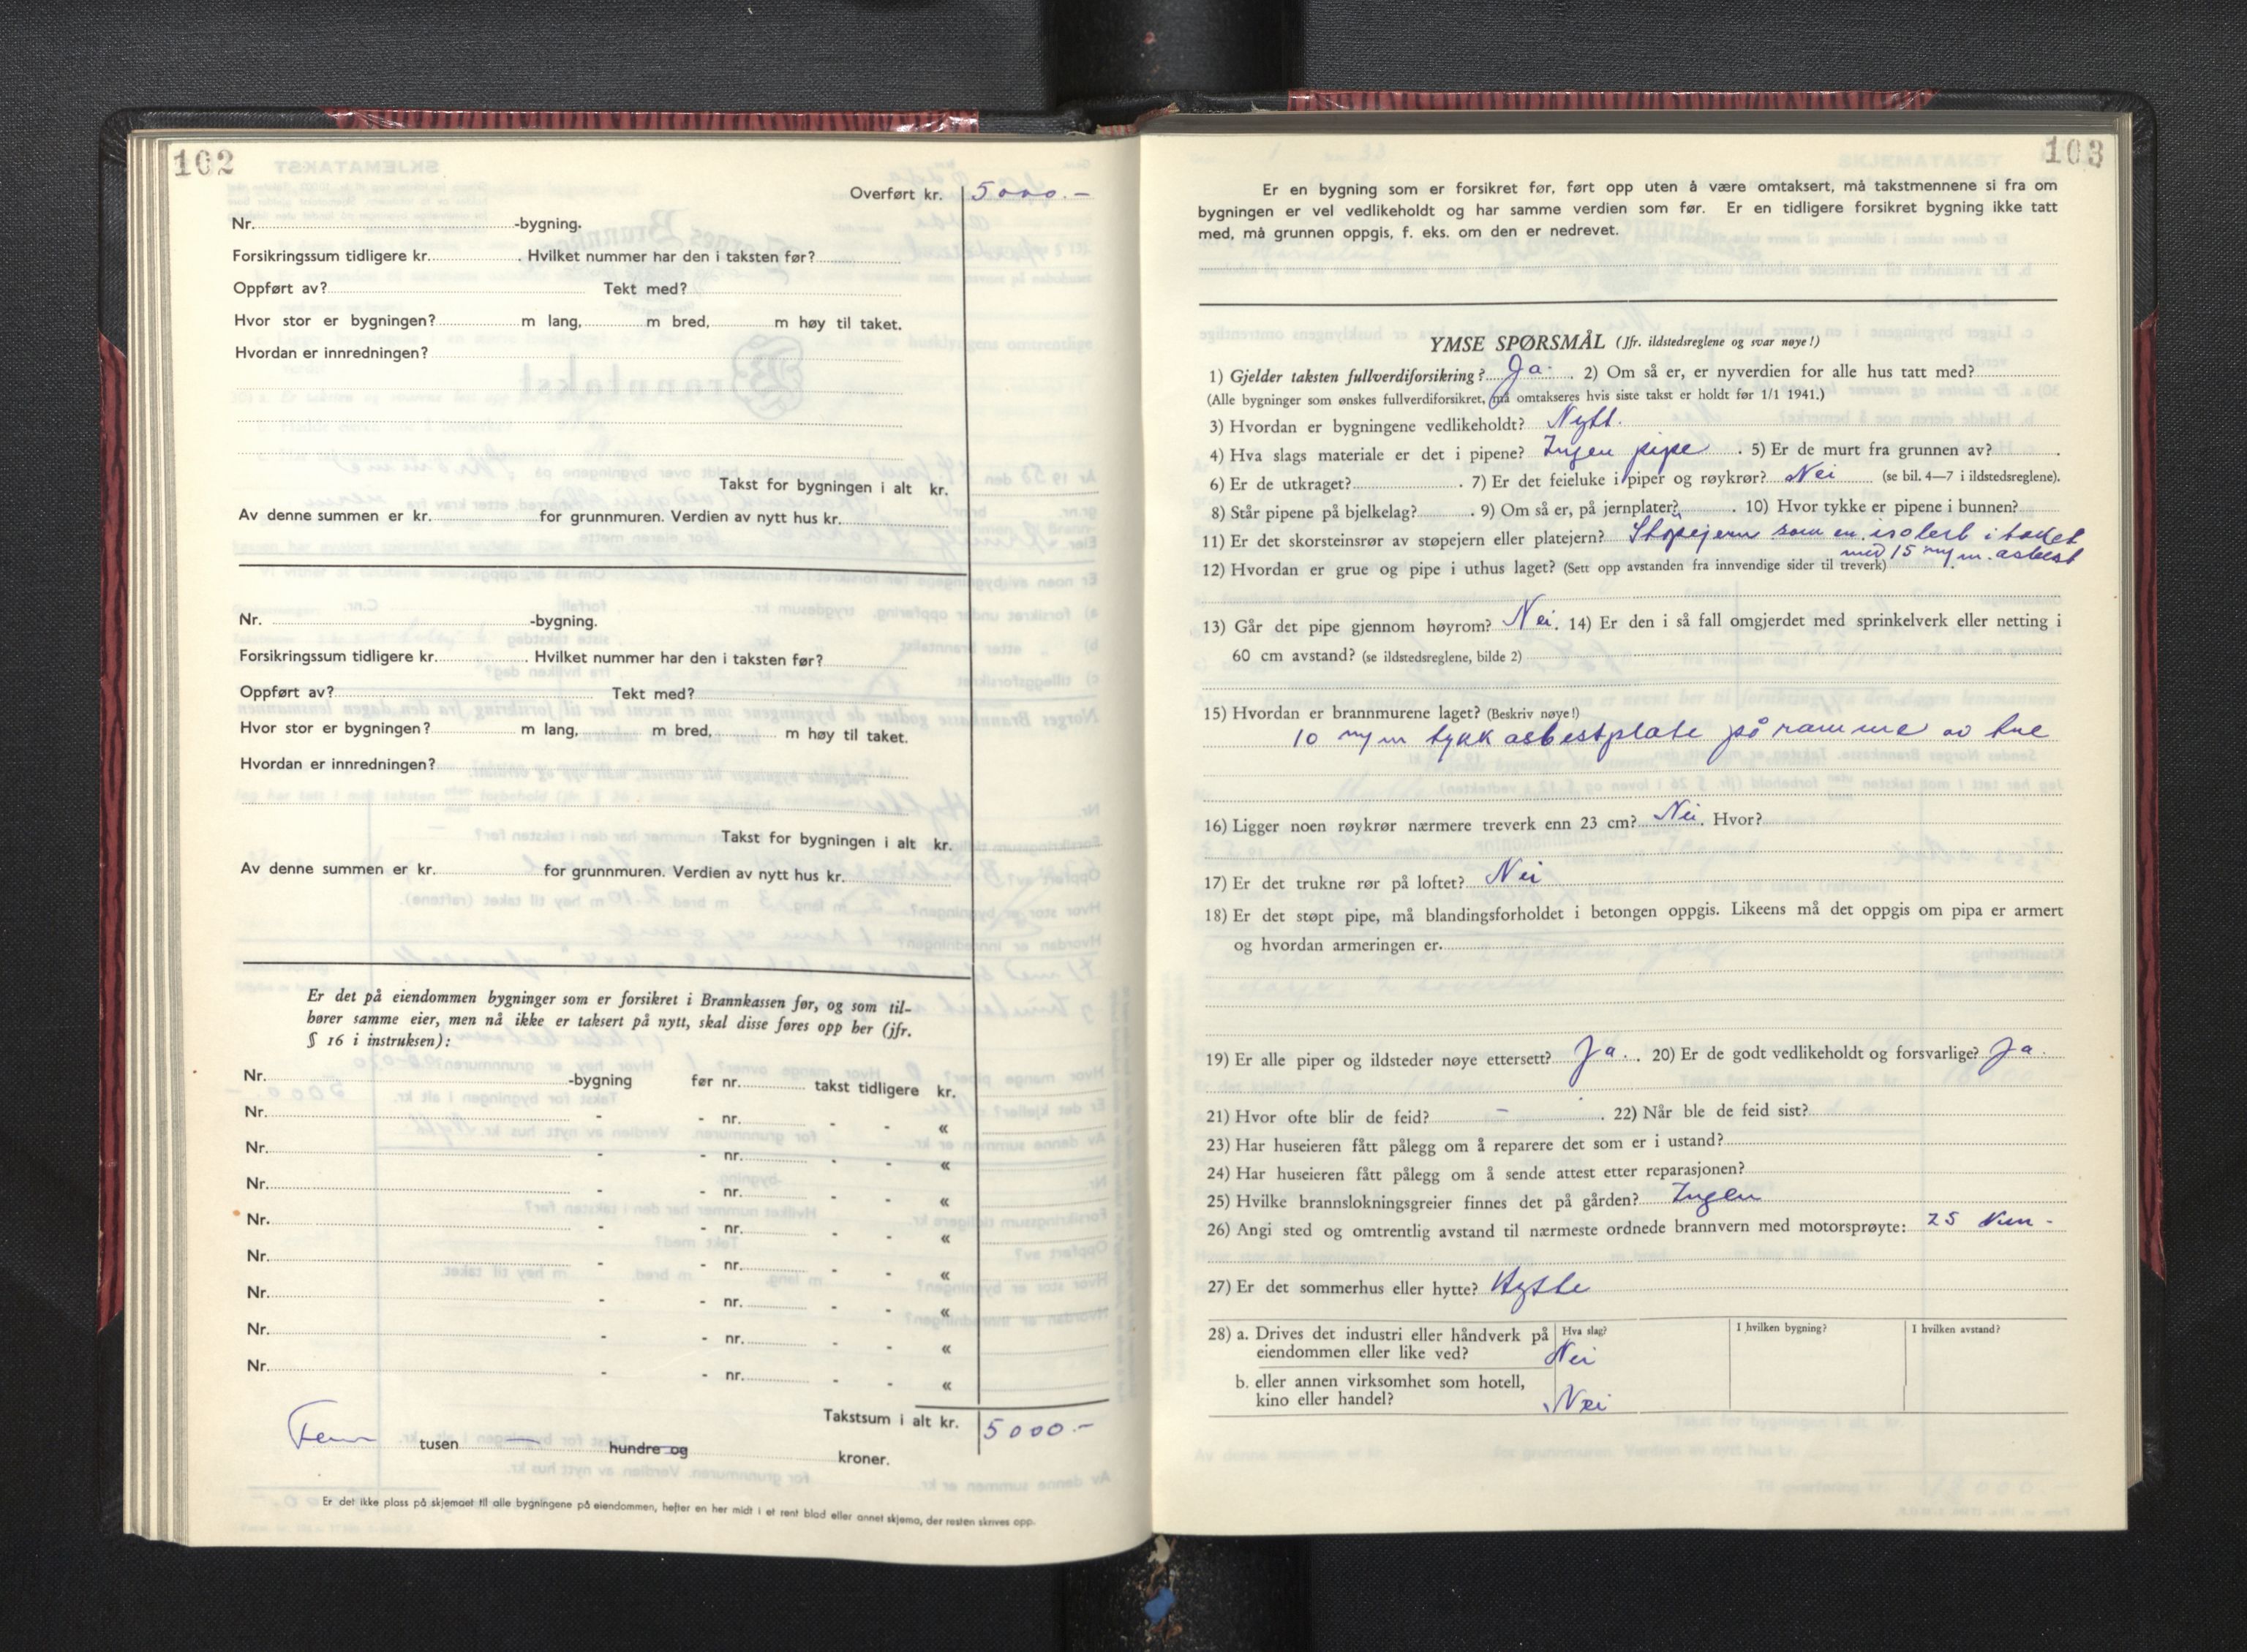 102
Overført kr. 5000.-
Nr. -bygning.
Forsikringssum tidligere kr. . Hvilket nummer har den i taksten før?
Oppført av? Tekt med?
Hvor stor er bygningen? m lang, m bred, m høy til taket.
Hvordan er innredningen?
Takst for bygningen i alt kr.
Av denne summen er kr. for grunnmuren. Verdien av nytt hus kr.
Nr. -bygning.
Forsikringssum tidligere kr. . Hvilket nummer har den i taksten før?
Oppført av? Tekt med?
Hvor stor er bygningen? m lang, m bred, m høy til taket.
Hvordan er innredningen?
Takst for bygningen i alt kr.
Av denne summen er kr. for grunnmuren. Verdien av nytt hus kr.
Er det på eiendommen bygninger som er forsikret i Brannkassen før, og som til-
hører samme eier, men nå ikke er taksert på nytt, skal disse føres opp her (jfr.
§ 16 i instruksen):
Nr. -bygning før nr. takst tidligere kr.
Nr. - - nr. - - «
Nr. - - nr. - - «
Nr. - - nr. - - «
Nr. - - nr. - - «
Nr. - - nr. - - «
Nr. - - nr. - - «
Nr. - - nr. - - «
Nr. - - nr. - - «
Takstsum i alt kr. 5000.-
Fem tusen — hundre og kroner.
Er det ikke plass på skjemaet til alle bygningene på eiendommen, hefter en her midt i et rent blad eller annet skjema, der resten skrives opp.
103
Er en bygning som er forsikret før, ført opp uten å være omtaksert, må takstmennene si fra om
bygningen er vel vedlikeholdt og har samme verdien som før. Er en tidligere forsikret bygning ikke tatt
med, må grunnen oppgis, f. eks. om den er nedrevet.
YMSE SPØRSMÅL (Jfr. ildstedsreglene og svar nøye!)
1) Gjelder taksten fullverdiforsikring? Ja. . 2) Om så er, er nyverdien for alle hus tatt med?
(Alle bygninger som ønskes fullverdiforsikret, må omtakseres hvis siste takst er holdt før 1/1 1941.)
3) Hvordan er bygningene vedlikeholdt? Nytt.
4) Hva slags materiale er det i pipene? Ingen pipe . 5) Er de murt fra grunnen av? .
6) Er de utkraget? . 7) Er det feieluke i piper og røykrør? Nei (se bil. 4—7 i ildstedsreglene).
8) Står pipene på bjelkelag? . 9) Om så er, på jernplater? . 10) Hvor tykke er pipene i bunnen?
11) Er det skorsteinsrør av støpejern eller platejern? Støpejern som er isolert i taket
med 15 m/m asbest
12) Hvordan er grue og pipe i uthus laget? (Sett opp avstanden fra innvendige sider til treverk) .
13) Går det pipe gjennom høyrom? Nei. 14) Er den i så fall omgjerdet med sprinkelverk eller netting i
60 cm avstand? (se ildstedsreglene, bilde 2)
15) Hvordan er brannmurene laget? (Beskriv nøye!)
10 m/m tykk asbestplate på ramme av tre
16) Ligger noen røykrør nærmere treverk enn 23 cm? Nei. Hvor?
17) Er det trukne rør på loftet? Nei
18) Er det støpt pipe, må blandingsforholdet i betongen oppgis. Likeens må det oppgis om pipa er armert
og hvordan armeringen er.
19) Er alle piper og ildsteder nøye ettersett? Ja . . 20) Er de godt vedlikeholdt og forsvarlige? Ja.
21) Hvor ofte blir de feid? — . 22) Når ble de feid sist?
23) Har huseieren fått pålegg om å reparere det som er i ustand?
24) Har huseieren fått pålegg om å sende attest etter reparasjonen?
25) Hvilke brannslokningsgreier finnes det på gården? Ingen
26) Angi sted og omtrentlig avstand til nærmeste ordnede brannvern med motorsprøyte: 25 km -
27) Er det sommerhus eller hytte? Hytte
28) a. Drives det industri eller håndverk på Hva slag? I hvilken bygning? I hvilken avstand?
eiendommen eller like ved? Nei
b. eller annen virksomhet som hotell,
kino eller handel? Nei